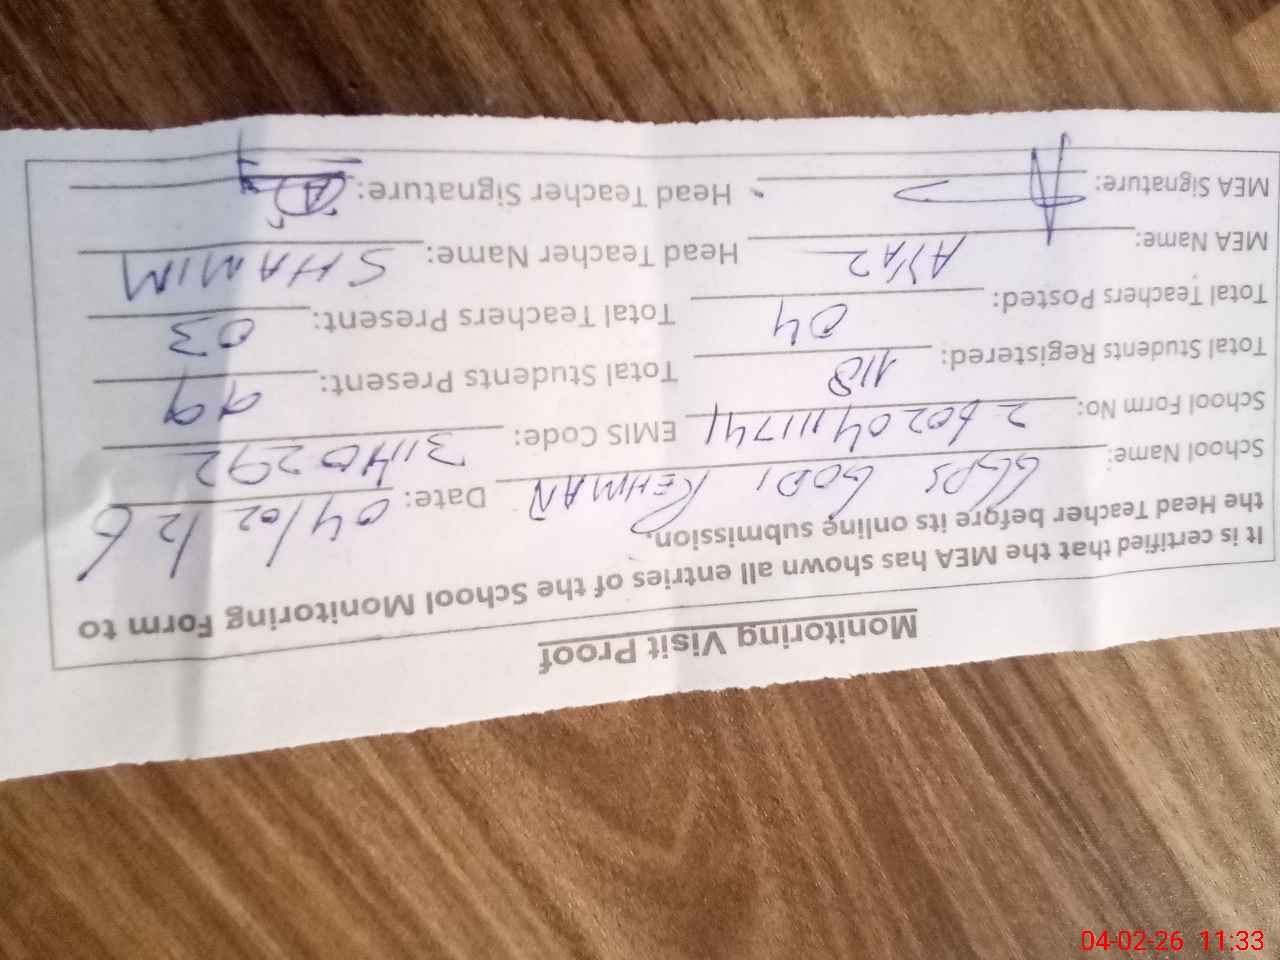 Monitoring Visit Proof
It is certified that the MEA has shown all entries of the School Monitoring Form to
the Head Teacher before its online submission.
School Name: GGPS GODI REHMAN Date: 04/02/26
School Form No: 26020411174 EMIS Code: 31140292
Total Students Registered: 118 Total Students Present: 99
Total Teachers Posted: 04 Total Teachers Present: 03
MEA Name: AYAZ Head Teacher Name: SHAMIM
MEA Signature: Head Teacher Signature:
04-02-26 11:33